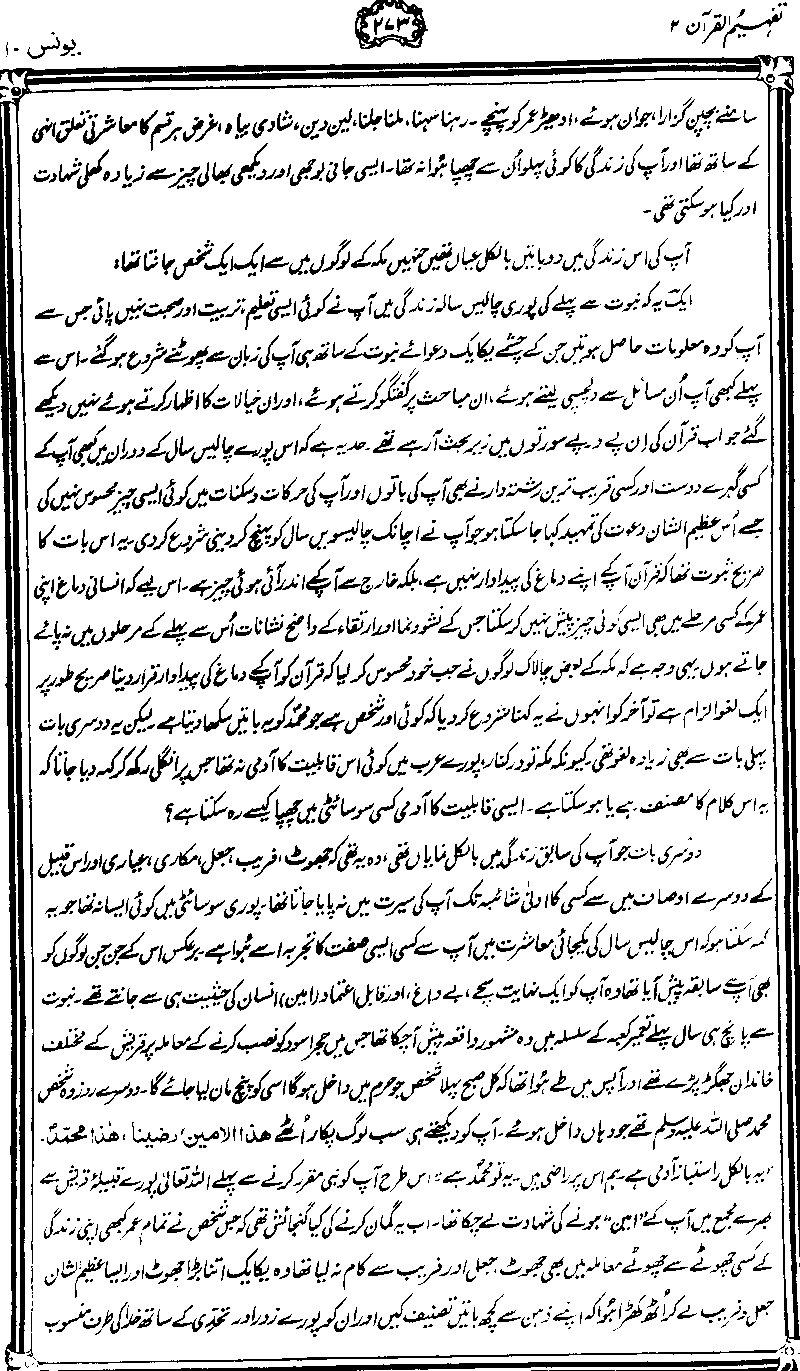 تفہیم القرآن ۲
۲۷۳
یونس ۱۰
سامنے بچپن گزارا، جوان ہوئے، ادھیڑ عمر کو پہنچے۔ رہنا سہنا، ملنا جلنا، لین دین، شادی بیاہ، غرض ہر قسم کا معاشرتی تعلق انہی
کے ساتھ تھا اور آپ کی زندگی کا کوئی پہلو اُن سے چھپا ہوا نہ تھا۔ ایسی جانی بوجھی اور دیکھی بھالی چیز سے زیادہ کھلی شہادت
اور کیا ہو سکتی تھی۔
آپ کی اس زندگی میں دو باتیں بالکل عیاں تھیں جنہیں مکہ کے لوگوں میں سے ایک ایک شخص جانتا تھا:
ایک یہ کہ نبوت سے پہلے کی پوری چالیس سالہ زندگی میں آپ نے کوئی ایسی تعلیم، تربیت اور صحبت نہیں پائی جس سے
آپ کو وہ معلومات حاصل ہوتیں جن کے چشمے یکایک دعوائے نبوت کے ساتھ ہی آپ کی زبان سے پھوٹنے شروع ہو گئے۔ اس سے
پہلے کبھی آپ اُن مسائل سے دلچسپی لیتے ہوئے، ان مباحث پر گفتگو کرتے ہوئے، اور ان خیالات کا اظہار کرتے ہوئے نہیں دیکھے
گئے جو اب قرآن کی اِن پے درپے سورتوں میں زیر بحث آ رہے تھے۔ حد یہ ہے کہ اس پورے چالیس سال کے دوران میں کبھی آپ کے
کسی گہرے دوست اور کسی قریب ترین رشتہ دار نے بھی آپ کی باتوں اور آپ کی حرکات و سکنات میں کوئی ایسی چیز محسوس نہیں کی
جسے اُس عظیم الشان دعوت کی تمہید کہا جا سکتا ہو جو آپ نے اچانک چالیسویں سال کو پہنچ کر دینی شروع کر دی۔ یہ اس بات کا
صریح ثبوت تھا کہ قرآن آپ کے اپنے دماغ کی پیداوار نہیں ہے، بلکہ خارج سے آپ کے اندر آئی ہوئی چیز ہے۔ اس لیے کہ انسانی دماغ اپنی
عمر کے کسی مرحلے میں بھی ایسی کوئی چیز پیش نہیں کر سکتا جس کے نشوونما اور ارتقاء کے واضح نشانات اُس سے پہلے کے مرحلوں میں نہ پائے
جاتے ہوں۔ یہی وجہ ہے کہ مکہ کے بعض چالاک لوگوں نے جب خود محسوس کر لیا کہ قرآن کو آپ کے دماغ کی پیداوار قرار دینا صریح طور پر
ایک لغو الزام ہے تو آخر کو انہوں نے یہ کہنا شروع کر دیا کہ کوئی اور شخص ہے جو محمدؐ کو یہ باتیں سکھا دیتا ہے۔ لیکن یہ دوسری بات
پہلی بات سے بھی زیادہ لغو تھی۔ کیونکہ مکہ تو درکنار، پورے عرب میں کوئی اس قابلیت کا آدمی نہ تھا جس پر انگلی رکھ کر کہہ دیا جاتا کہ
یہ اس کلام کا مصنف ہے یا ہو سکتا ہے۔ ایسی قابلیت کا آدمی کسی سوسائٹی میں چھپا کیسے رہ سکتا ہے؟
دوسری بات جو آپ کی سابق زندگی میں بالکل نمایاں تھی، وہ یہ تھی کہ جھوٹ، فریب، جعل، مکاری، عیاری اور اس قبیل
کے دوسرے اوصاف میں سے کسی کا ادنیٰ شائبہ تک آپ کی سیرت میں نہ پایا جاتا تھا۔ پوری سوسائٹی میں کوئی ایسا نہ تھا جو یہ
کہہ سکتا ہو کہ اس چالیس سال کی یکجائی معاشرت میں آپ سے کسی ایسی صفت کا تجربہ اسے ہوا ہے۔ برعکس اس کے جن جن لوگوں کو
بھی آپ سے سابقہ پیش آیا تھا وہ آپ کو ایک نہایت سچے، بے داغ، اور قابل اعتماد (امین) انسان کی حیثیت ہی سے جانتے تھے۔ نبوت
سے پانچ ہی سال پہلے تعمیر کعبہ کے سلسلہ میں وہ مشہور واقعہ پیش آ چکا تھا جس میں حجر اسود کو نصب کرنے کے معاملہ پر قریش کے مختلف
خاندان جھگڑ پڑے تھے اور آپس میں طے ہوا تھا کہ کل صبح پہلا شخص جو حرم میں داخل ہو گا اسی کو پنچ مان لیا جائے گا۔ دوسرے روز وہ شخص
محمد صلی اللہ علیہ وسلم تھے جو وہاں داخل ہوئے۔ آپ کو دیکھتے ہی سب لوگ پکار اُٹھے ھذا الامین، رضینا، ھذا محمدٌ۔
”یہ بالکل راستباز آدمی ہے۔ ہم اس پر راضی ہیں۔ یہ تو محمدؐ ہے“۔ اس طرح آپ کو نبی مقرر کرنے سے پہلے اللہ تعالیٰ پورے قبیلۂ قریش سے
بھرے مجمع میں آپ کے ”امین“ ہونے کی شہادت لے چکا تھا۔ اب یہ گمان کرنے کی کیا گنجائش تھی کہ جس شخص نے تمام عمر کبھی اپنی زندگی
کے کسی چھوٹے سے چھوٹے معاملہ میں بھی جھوٹ، جعل اور فریب سے کام نہ لیا تھا وہ یکایک اتنا بڑا جھوٹ اور ایسا عظیم الشان
جعل و فریب لے کر اُٹھ کھڑا ہوا کہ اپنے ذہن سے کچھ باتیں تصنیف کیں اور ان کو پورے زور اور تحدی کے ساتھ خدا کی طرف منسوب